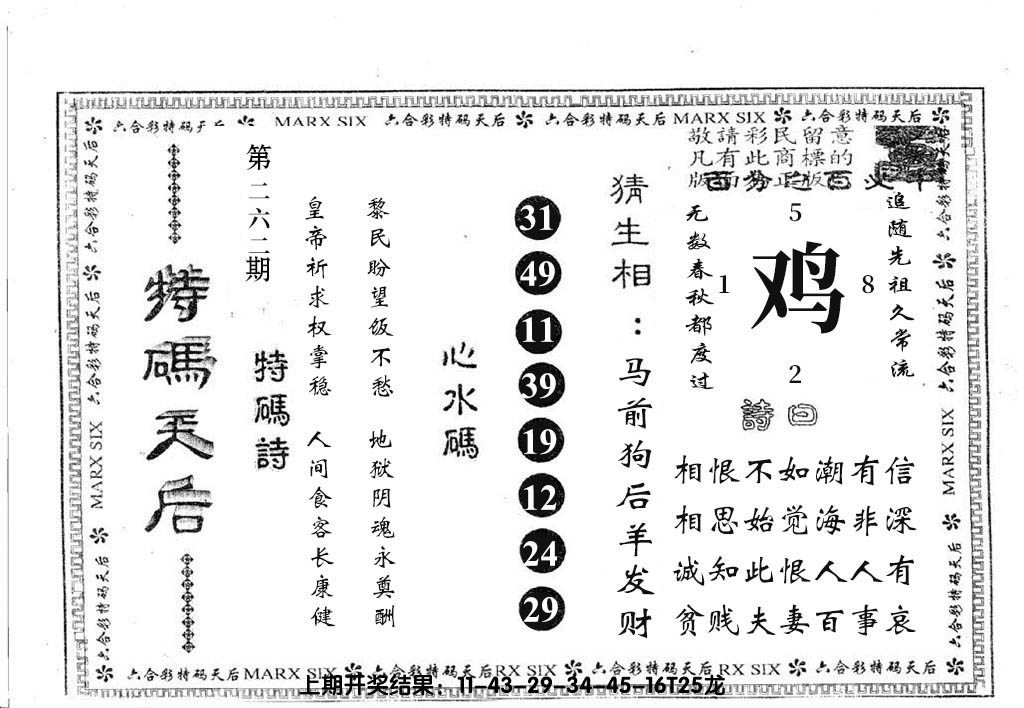 六合彩特码 MARX SIX 六合彩特码天后 六合彩特码天后 MARX SIX 六合彩特码天后
六合彩特码天后 六合彩特码天后 MARX SIX
特碼天后
第二六二期
特碼詩
皇帝祈求权掌稳 人间食客长康健
黎民盼望饭不愁 地狱阴魂永奠酬
心水碼
31
49
11
39
19
12
24
29
猜生相：马前狗后羊发财
敬請彩民留意
凡有此商標的
正版
无数春秋都度过
5
1 鸡 8
2
追随先祖久常流
詩曰
相恨不如潮有信
相思始觉海非深
诚知此恨人人有
贫贱夫妻百事哀
六合彩特码天后 六合彩特码天后 MARX SIX 六合彩特码天后
六合彩特码天后 MARX SIX 六合彩特码天后 RX SIX 六合彩特码天后 RX SIX 六合彩特码天后
上期开奖结果：11-43-29-34-45-16T25龙